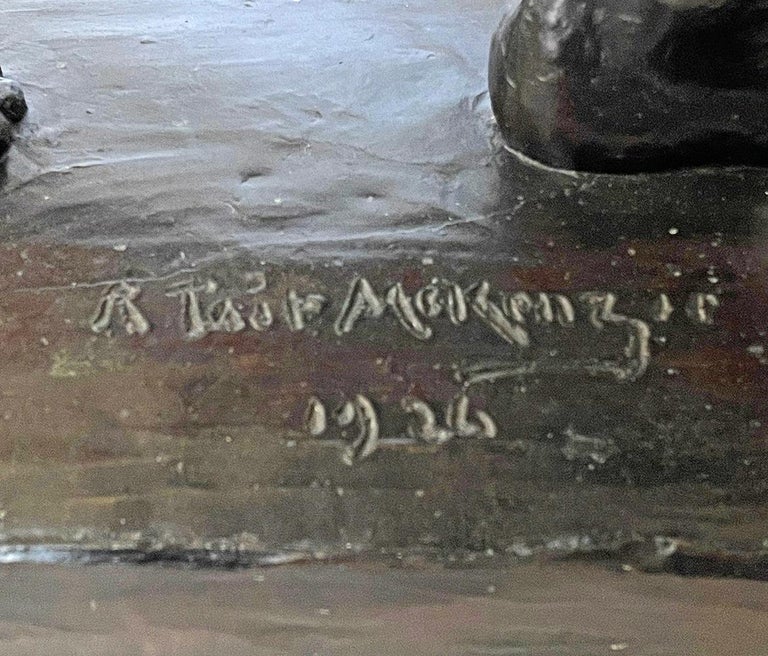 R Tait McKenzie
1926